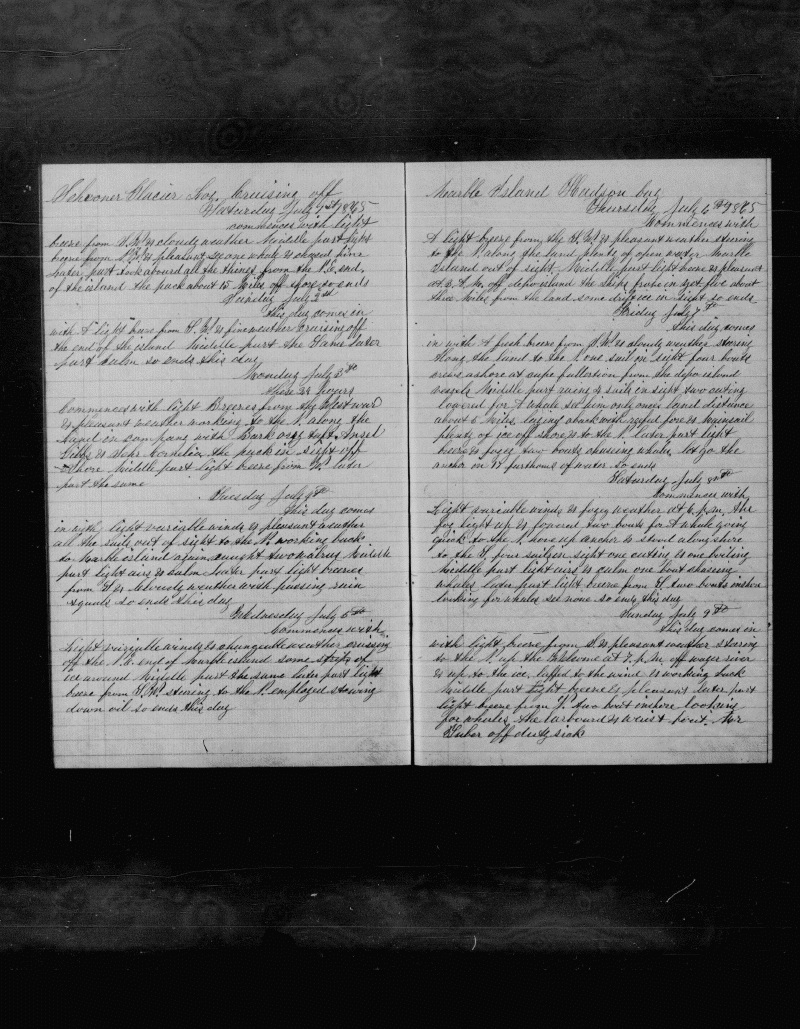 Schooner Glacier Log Cruising off
Saturday July 1st 1865
commences with light
breeze from S.W. & cloudy weather Middle part light
breeze from & pleasant saw one whale & chased him
later part took around all the from the N.E. end
of the island the pack about 15 Miles off shore so ends
Sunday July 2nd
this day comes in
with A light breeze from S.W. & fine weather Cruising off
the end of the island Middle part the Same later
part calm so ends this day
Monday July 3th
these 24 hours
Commences with light Breezes from the Westward
& pleasant weather working to the N. along the
land in company with Bark Ansel
Gibbs & Schr Cornelia the pack in sight off
Shore Middle part light breeze from W. later
part the same
Tuesday July 4th
this day comes
in with light variable winds & pleasant weather
all the sails out of sight to the N. working back
to Marble island again caught two walrus Middle
part light airs & calm Later part light breeze
from & cloudy weather with passing rain
squals so ends this day
Wednesday July 5th
Commences with
Light variable winds & changeable weather cruising
off the end of Marble island some strips of
ice around Middle part the same later part light
breeze from S.W. steering to the N. employed stowing
down oil so ends this day
Marble Island Hudson bay
Thursday July 6th 1865
Commences with
A light breeze from the S.W. & pleasant weather steering
to the N. along the land plenty of open water Marble
Island out of sight Middle part light breeze & pleasant
at off depo island the ships froze in yet five about
three Miles from the land some drift ice in sight so ends
Friday July 7th
this day comes
in with A fresh breeze from S.W. & cloudy weather steering
along the land to the N. one sail in sight four boats
crews ashore at cape fullartion from the depo island
vessels Middle part rainy 4 sails in sight two cuting
lowered for A whale see him only once land distance
about 6 Miles laying aback with reefed fore & mainsail
plenty of ice off shore & to the N. later part light
breeze & fogey two boats chasing whales let go the
anchor in 17 farthoms of water so ends
Saturday July 8th
Commences with
Light variable winds & fogey weather at 6 p.m. the
fog light up & lowered two boats for A whale going
quick to the N. hove up anchor & stood along shore
to the N. four sails in sight one cuting & one boiling
Middle part light airs & calm one boat chaseing
whales later part light breeze from two boats inshore
looking for whales see none so ends this day
Sunday July 9th
this day comes in
with light breeze from S. & pleasant weather stearing
to the N. up the Welcome at 7 p.m. off wager river
& up to the ice luffed to the wind & working back
Middle part light breeze & pleasant later part
light breeze from W. two boats inshore looking
for whales the larboard & waist boat. Mr
off duty sick